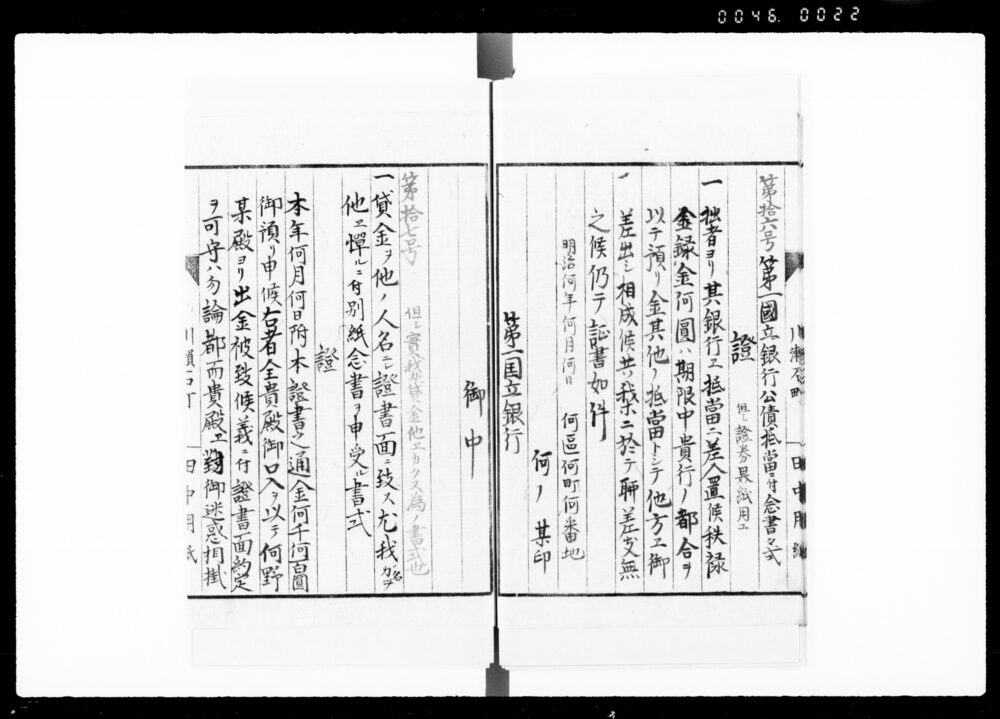 0046. 0022
第拾六号 第一國立銀行公債抵當ニ付念書之式
但シ證券界紙用ユ
證
一 拙者ヨリ其銀行エ抵當ニ差入置候秩禄
金録金何圓ハ期限中貴行ノ都合ヲ
以テ預リ金其他ノ抵當トシテ他方エ御
差出シ相成候共我等ニ於テ聊差支無
之候仍テ證書如件
明治何年何月何日
何區何町何番地
何ノ某印
第一国立銀行
御中
第拾七号
但シ實我ガ貸金他エカクス為ノ書式也
一 貸金ヲ他ノ人名ニシ證書面ニ致ス尤我名ガヲ
他エ憚ルニ付別紙念書ヲ申受ル書式
證
本年何月何日附本證書之通金何千何百圓
御預リ申候右者全貴殿御口入ヲ以テ何野
某殿ヨリ出金被致候義ニ付證書面約定
ヲ可守ハ勿論都而貴殿エ對御迷惑相掛
川瀬石町
田中用紙